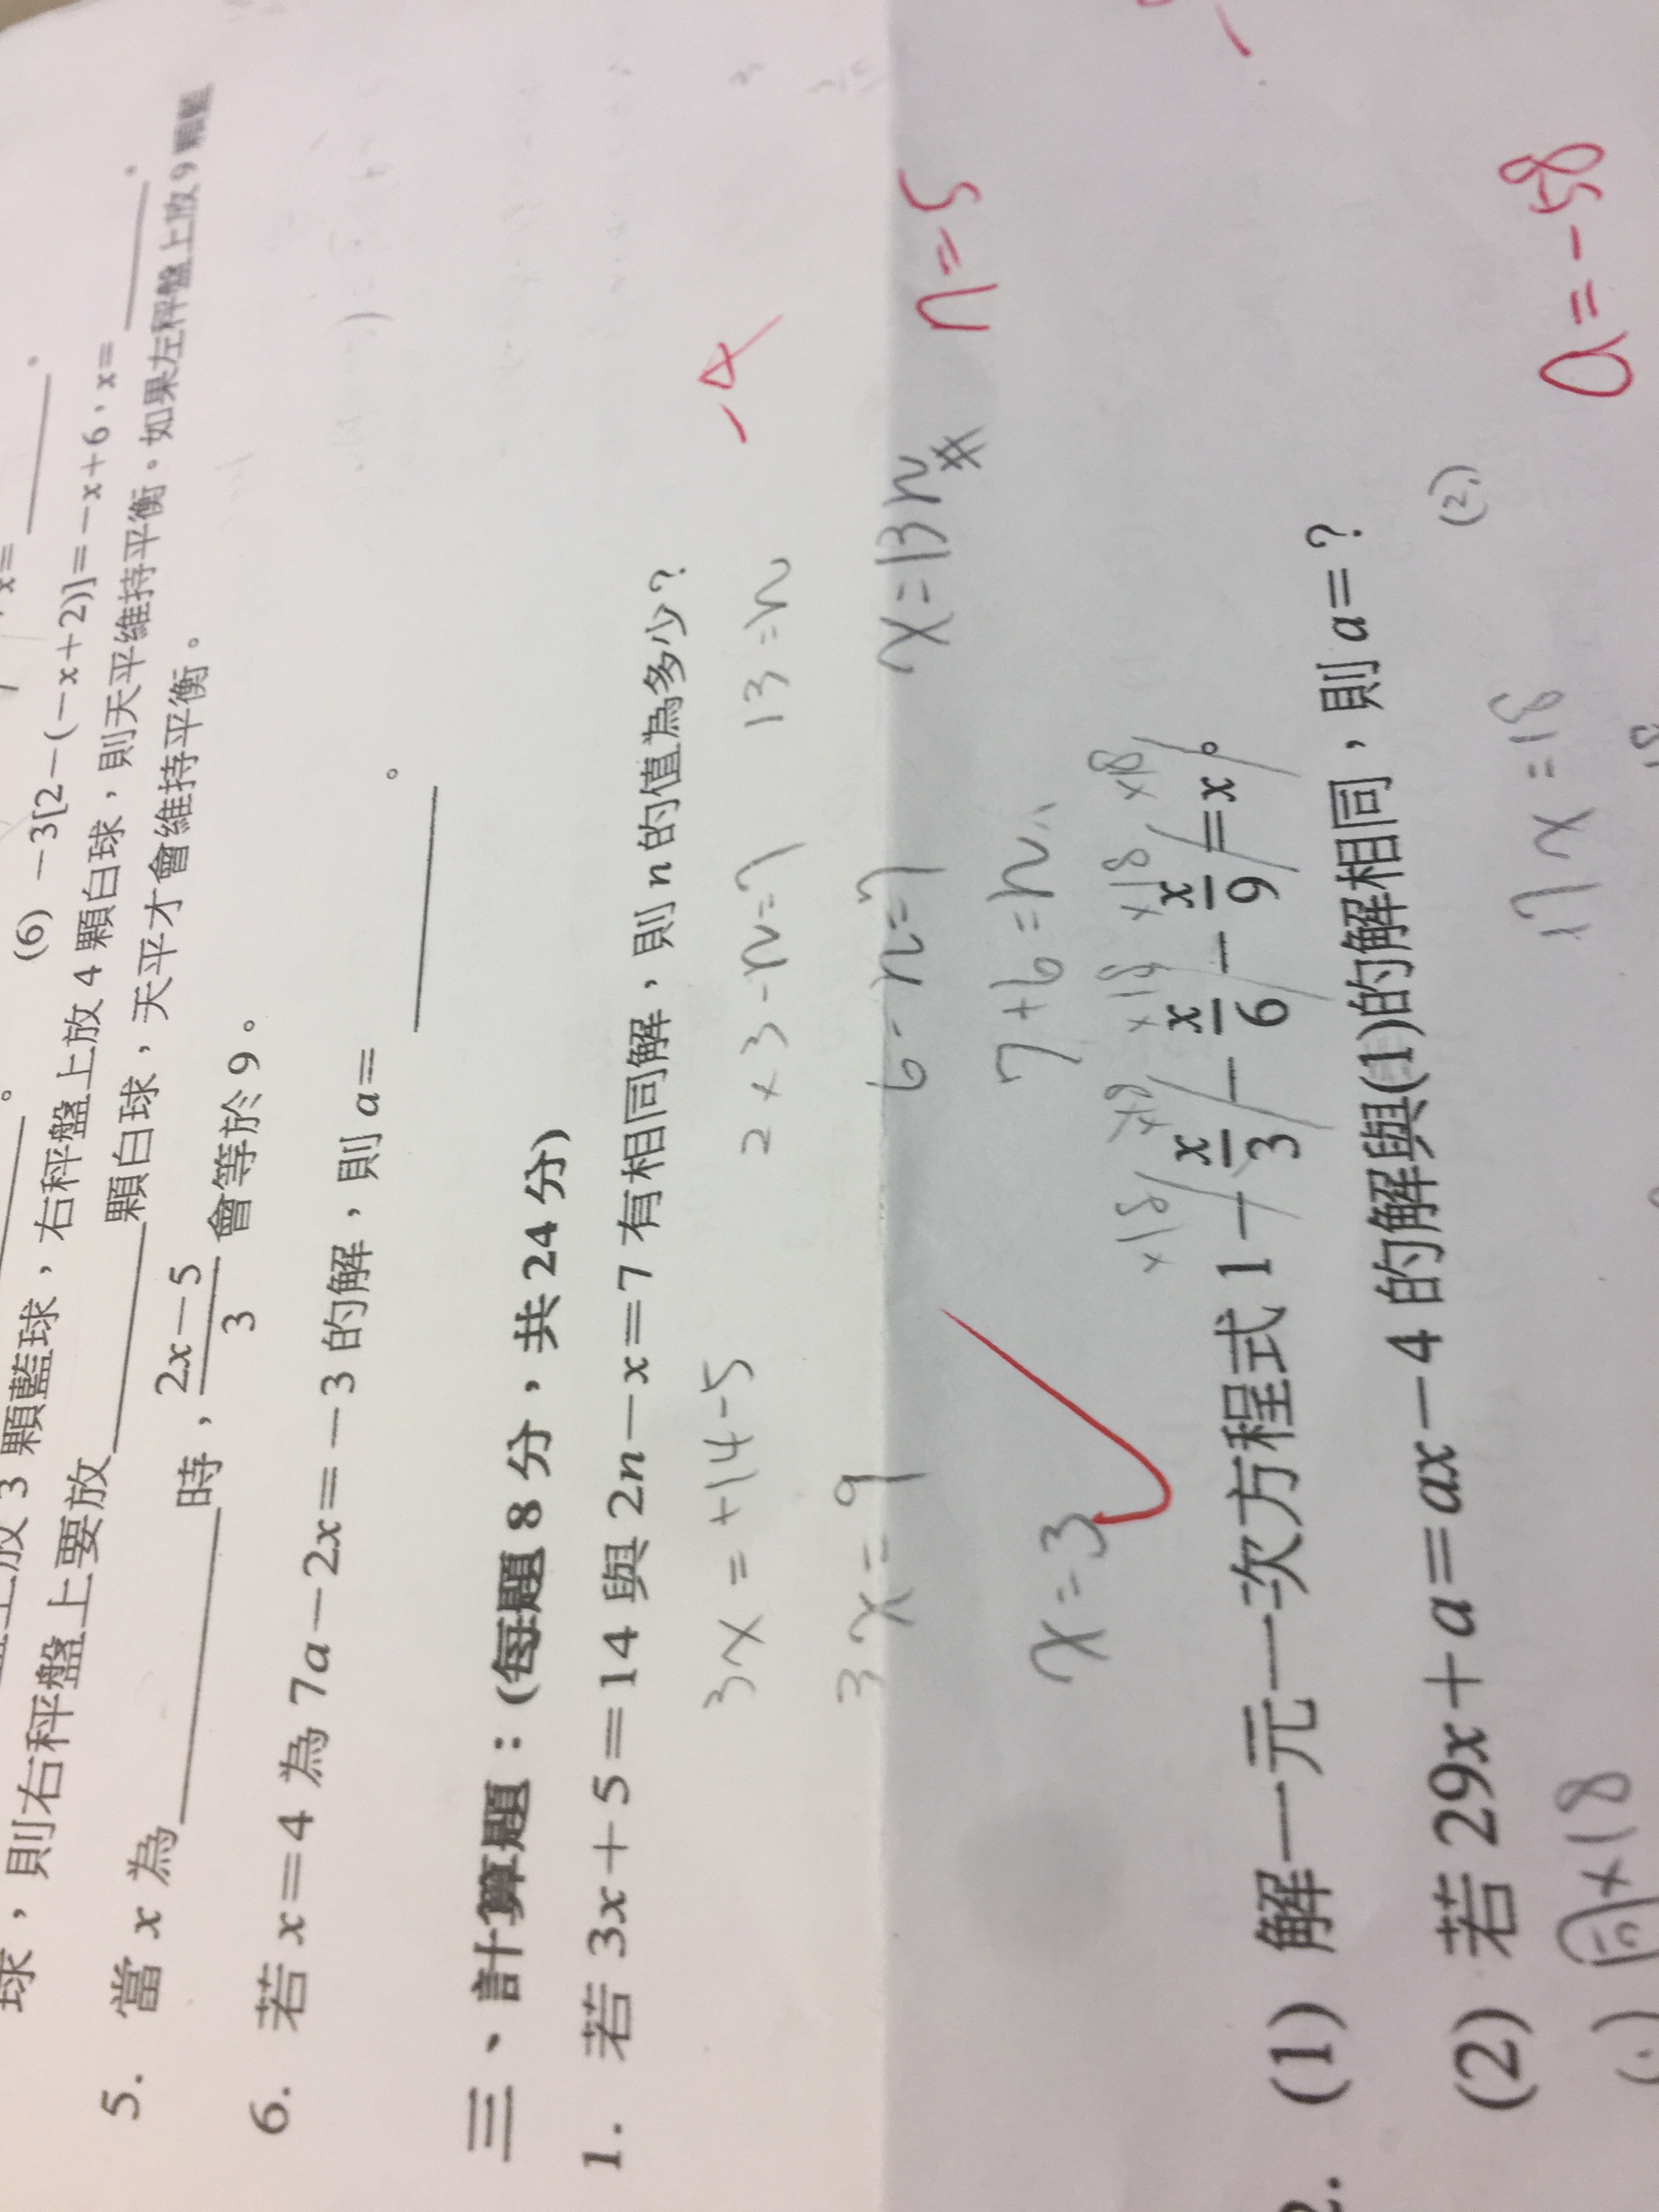 x=
(6) －3[2－(－x＋2)]＝－x＋6，x＝ 。
上放 3 顆藍球，右秤盤上放 4 顆白球，則天平維持平衡。如果左秤盤上放 9 顆藍
球，則右秤盤上要放 顆白球，天平才會維持平衡。
5. 當 x 為 時，2x－5/3 會等於 9。
6. 若 x＝4 為 7a－2x＝－3 的解，則 a＝ 。
三、計算題：(每題 8 分，共 24 分)
1. 若 3x＋5＝14 與 2n－x＝7 有相同解，則 n 的值為多少？
3x = +14-5 2×3-n=7 13=n
-4
3x=9 6-n=7 x=13n
n=5
x=3 7+6=n
×18 ×18 ×18 ×18
2. (1) 解一元一次方程式 1－x/3－x/6－x/9＝x。
(2) 若 29x＋a＝ax－4 的解與(1)的解相同，則 a＝？
(1) 同×18 17x=18 (2)
a=-58
18